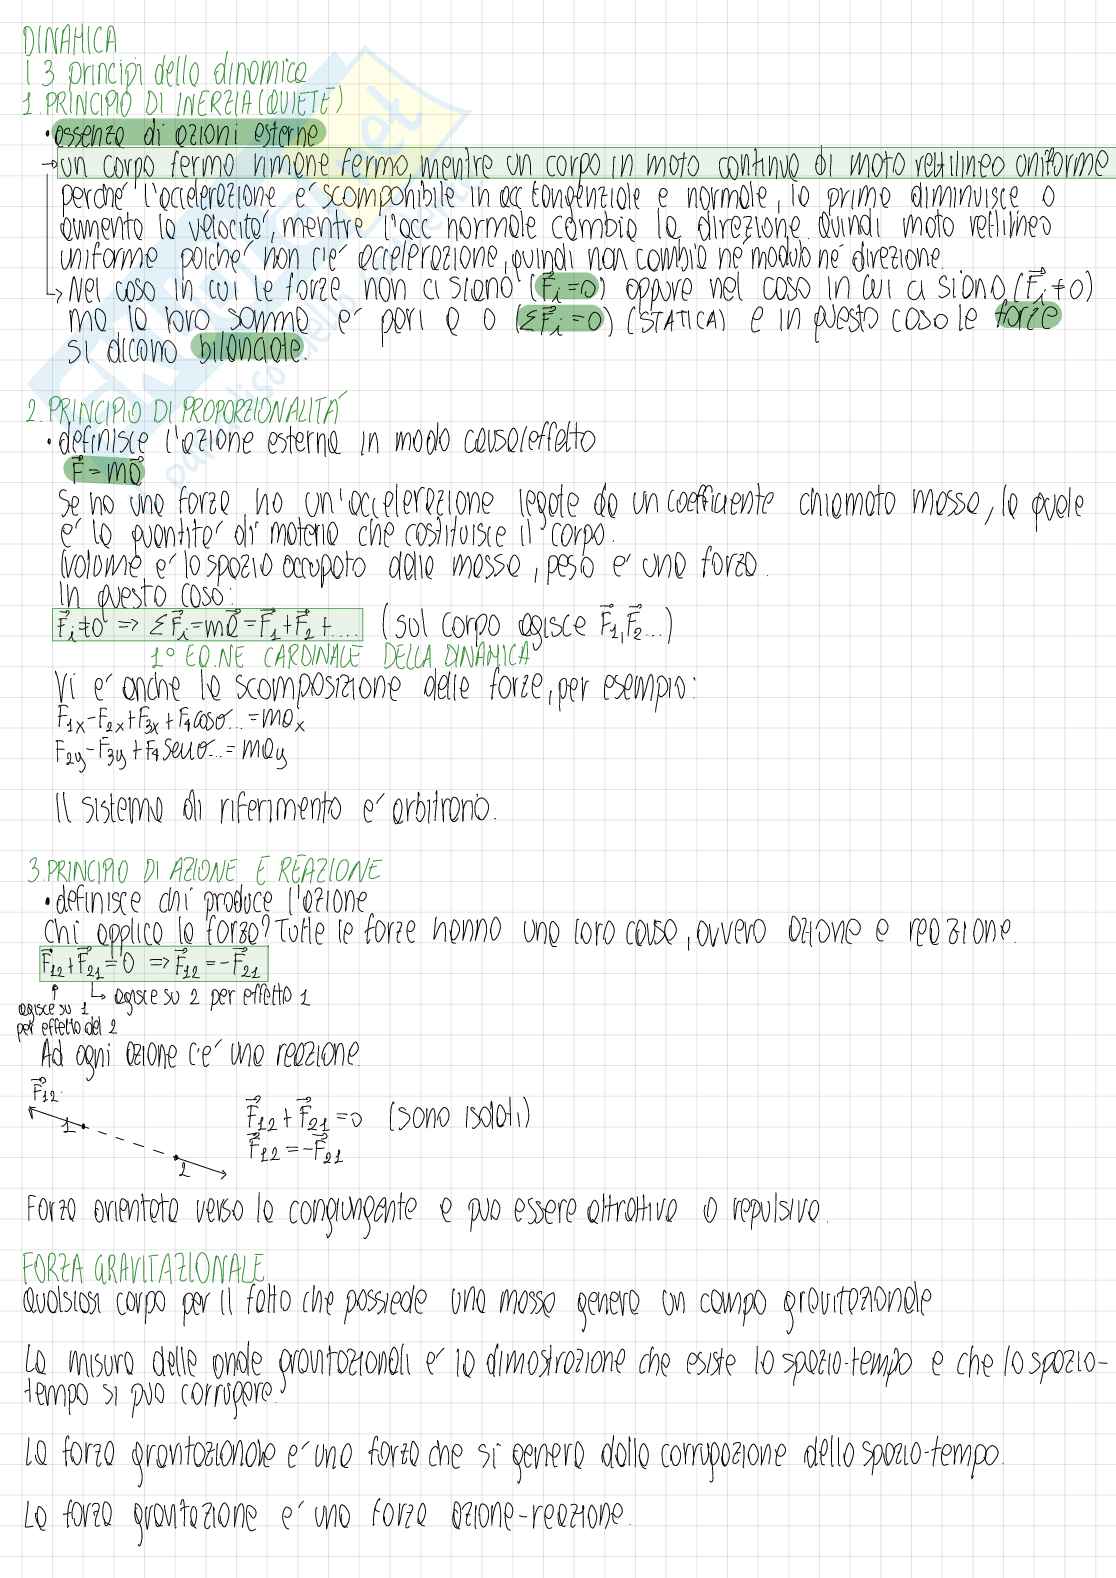 DINAMICA
I 3 principi della dinamica
1. PRINCIPIO DI INERZIA (QUIETE)
• assenza di azioni esterne
→ un corpo fermo rimane fermo mentre un corpo in moto continua di moto rettilineo uniforme
perché l'accelerazione é scomponibile in acc tangenziale e normale, la prima diminuisce o
aumenta la velocitá, mentre l'acc normale cambia la direzione. Quindi moto rettilineo
uniforme poiché non c'é accelerazione, quindi non cambia né modulo né direzione.
↳ Nel caso in cui le forze non ci siano (F⃗i=0) oppure nel caso in cui ci siano (F⃗i≠0)
ma la loro somma é pari a 0 (ΣF⃗i=0) (STATICA) e in questo caso le forze
si dicono bilanciate.
2. PRINCIPIO DI PROPORZIONALITÁ
• definisce l'azione esterna in modo causa/effetto
F⃗=ma⃗
Se ho una forza, ho un'accelerazione legata da un coefficiente chiamato massa, la quale
é la quantitá di materia che costituisce il corpo.
(volume é lo spazio occupato dalla massa, peso é una forza.
In questo caso:
F⃗i≠0 => ΣF⃗i=ma⃗=F⃗1+F⃗2+.... (sul corpo agisce F⃗1,F⃗2...)
1° EQ.NE CARDINALE DELLA DINAMICA
Vi é anche la scomposizione delle forze, per esempio:
F1x-F2x+F3x+F4cosσ...=max
F2y-F3y+F4senσ...=may
Il sistema di riferimento é arbitrario.
3. PRINCIPIO DI AZIONE E REAZIONE
• definisce chi produce l'azione
Chi applica la forza? Tutte le forze hanno una loro causa, ovvero azione e reazione.
F⃗12+F⃗21=0 => F⃗12=-F⃗21
↑ ↳ agisce su 2 per effetto 1
agisce su 1
per effetto del 2
Ad ogni azione c'é una reazione.
F⃗12
1
2
F⃗12+F⃗21=0 (sono isolati)
F⃗12=-F⃗21
Forza orientata verso la congiungente e puo essere attrattiva o repulsiva.
FORZA GRAVITAZIONALE
Qualsiasi corpo per il fatto che possiede una massa genera un campo gravitazionale
La misura delle onde gravitazionali é la dimostrazione che esiste lo spazio-tempo e che lo spazio-
tempo si puo corrugare.
La forza gravitazionale é una forza che si genera dalla corrugazione dello spazio-tempo.
La forza gravitazione é una forza azione-reazione.